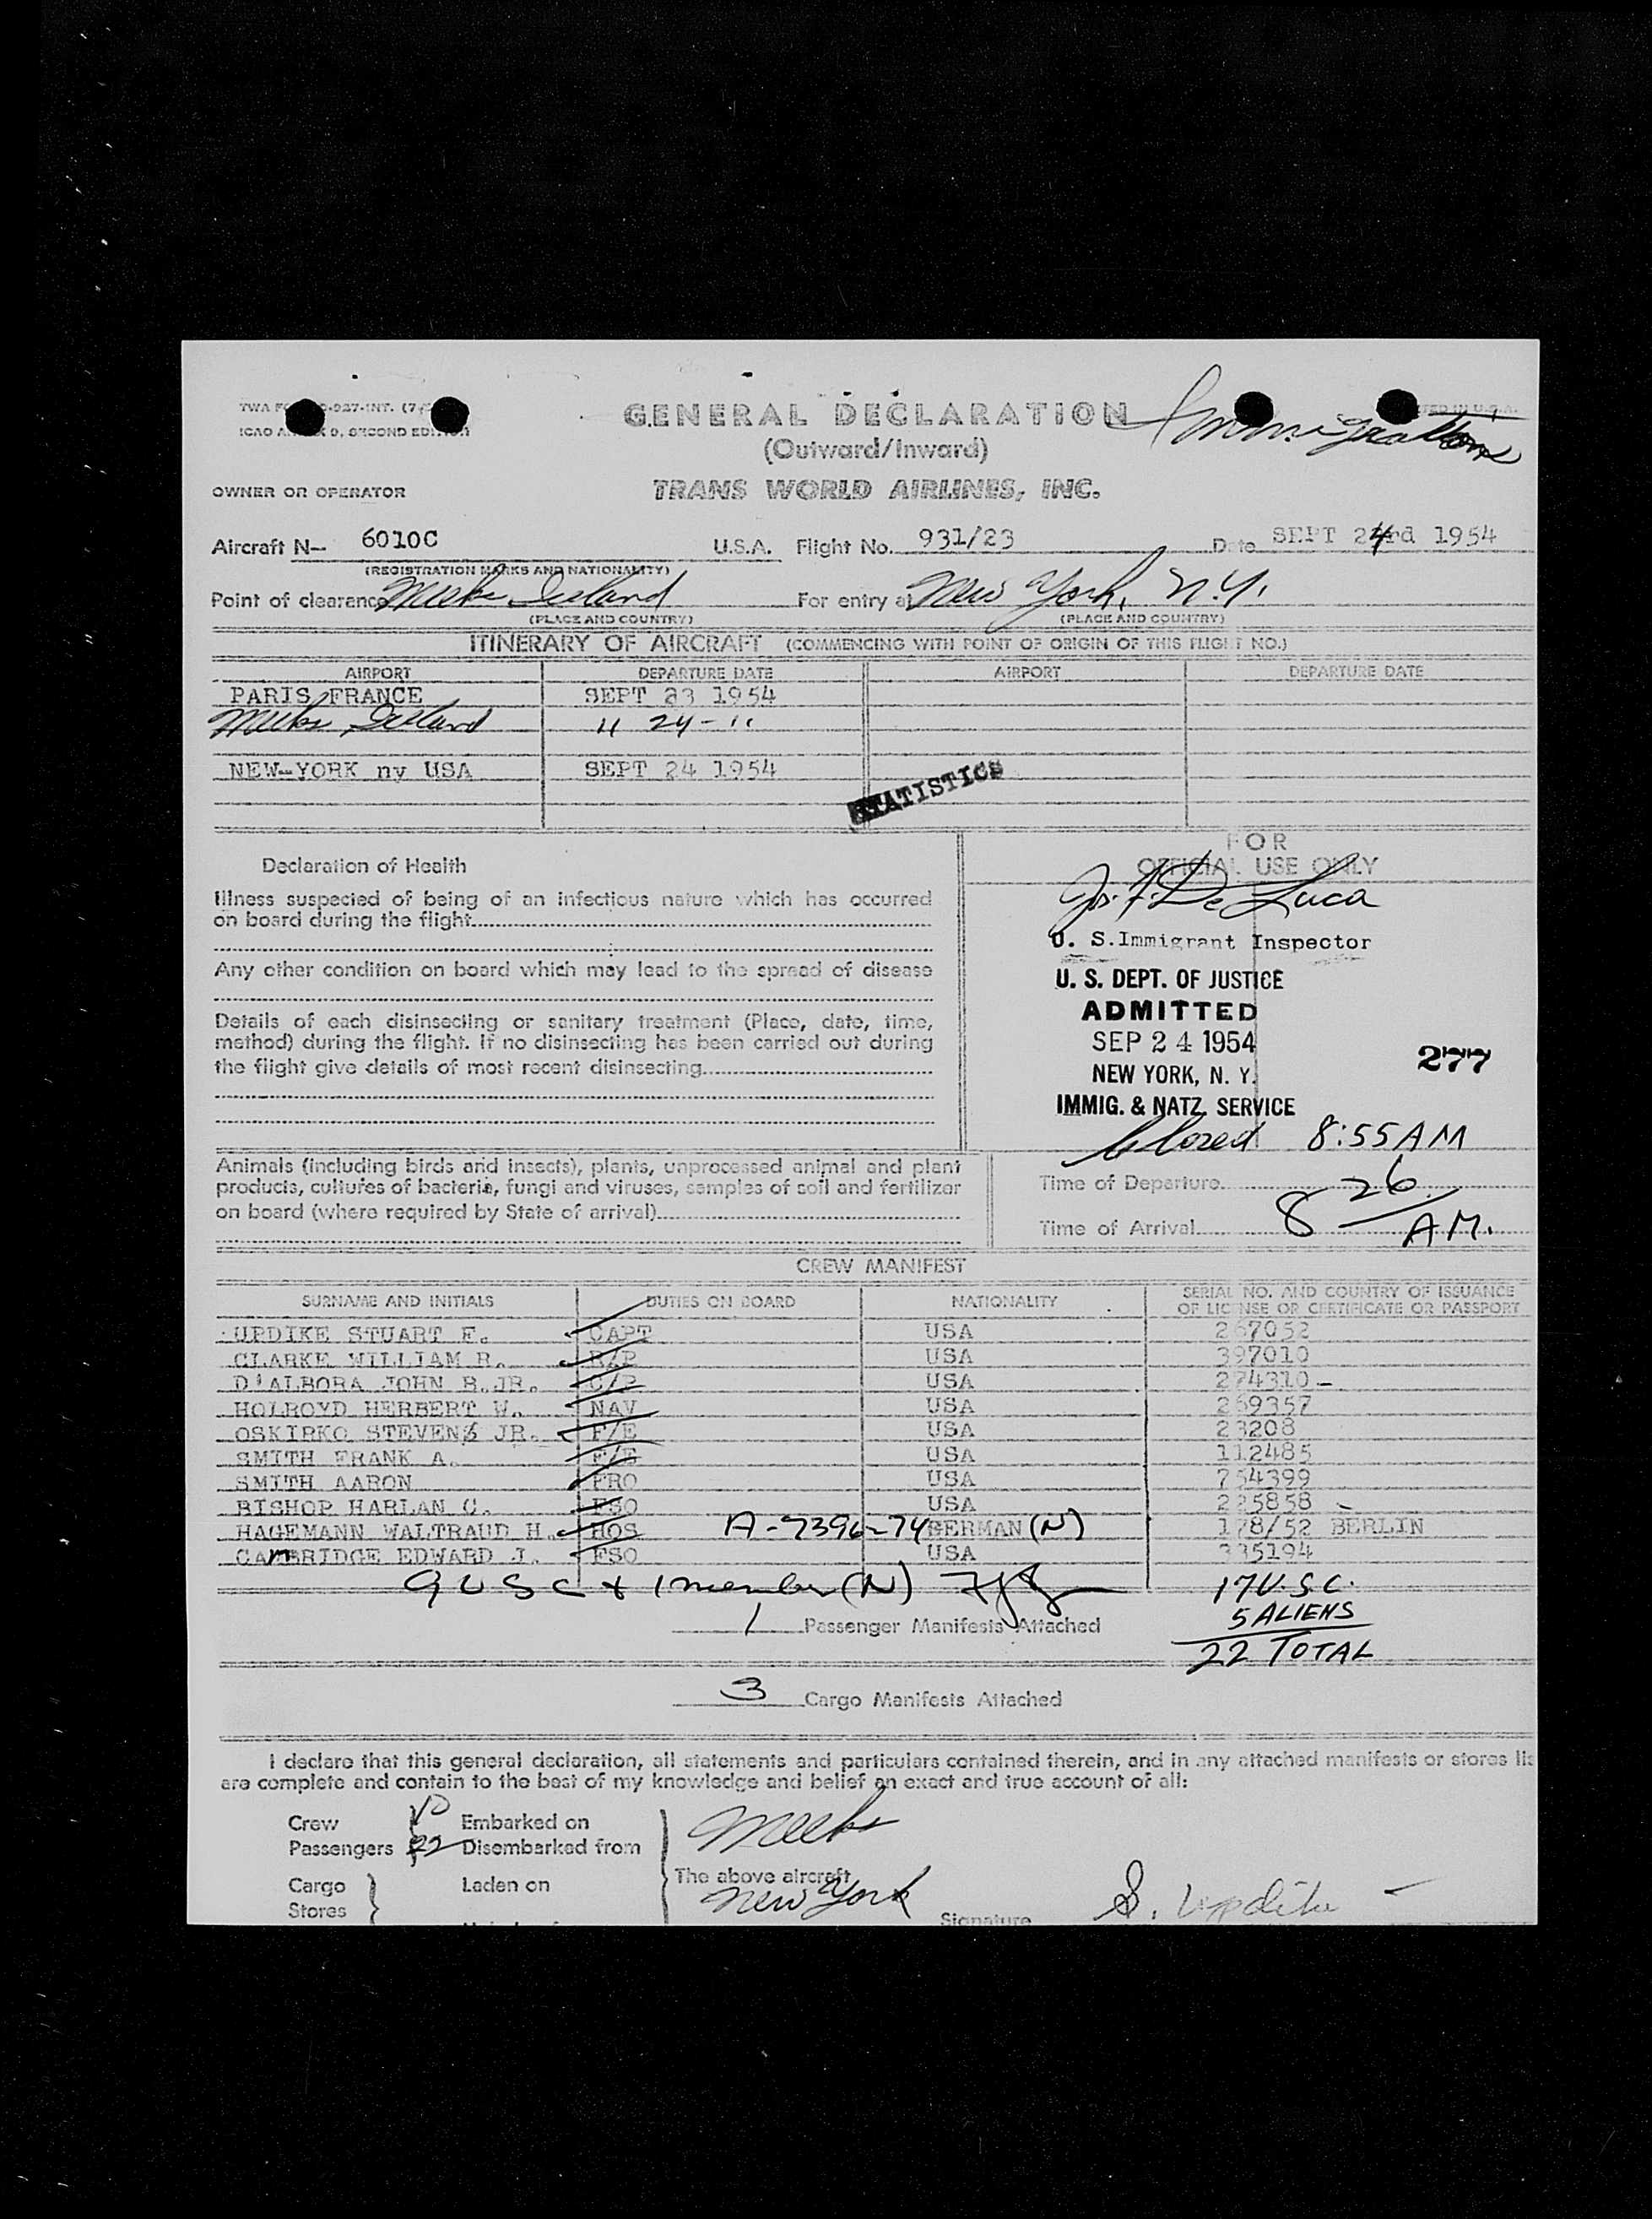 GENERAL DECLARATION Immigration
(Outward/Inward)
OWNER OR OPERATOR TRANS WORLD AIRLINES, INC.
Aircraft N— 6010C U.S.A. Flight No. 931/23 Date SEPT 24rd 1954
(REGISTRATION MARKS AND NATIONALITY)
Point of clearance Meeks Iceland For entry at New York, N.Y.
(PLACE AND COUNTRY) (PLACE AND COUNTRY)
ITINERARY OF AIRCRAFT (COMMENCING WITH POINT OF ORIGIN OF THIS FLIGHT NO.)
AIRPORT DEPARTURE DATE AIRPORT DEPARTURE DATE
PARIS FRANCE SEPT 23 1954
Meeks Iceland " 24 - "
NEW-YORK ny USA SEPT 24 1954
STATISTICS
FOR
OFFICIAL USE ONLY
Declaration of Health
Illness suspected of being of an infectious nature which has occurred
on board during the flight
Any other condition on board which may lead to the spread of disease
Details of each disinsecting or sanitary treatment (Place, date, time,
method) during the flight. If no disinsecting has been carried out during
the flight give details of most recent disinsecting
De Luca
U. S.Immigrant Inspector
U. S. DEPT. OF JUSTICE
ADMITTED
SEP 24 1954
NEW YORK, N. Y.
IMMIG. & NATZ. SERVICE
277
Closed 8:55 AM
Animals (including birds and insects), plants, unprocessed animal and plant
products, cultures of bacteria, fungi and viruses, samples of soil and fertilizer
on board (where required by State of arrival)
Time of Departure
Time of Arrival 8 26 AM.
CREW MANIFEST
SURNAME AND INITIALS DUTIES ON BOARD NATIONALITY SERIAL NO. AND COUNTRY OF ISSUANCE
OF LICENSE OR CERTIFICATE OR PASSPORT
UPDIKE STUART E. CAPT USA 267052
CLARKE WILLIAM R. R/P USA 397010
D'ALBORA JOHN B.JR. C/P USA 274310
HOLROYD HERBERT W. NAV USA 269357
OSKIRKO STEVENS JR. F/E USA 23208
SMITH FRANK A. F/E USA 112485
SMITH AARON FRO USA 754399
BISHOP HARLAN C. FSO USA 225858
HAGEMANN WALTRAUD H. HOS A-7396-74 GERMAN (N) 178/52 BERLIN
CAMBRIDGE EDWARD J. FSO USA 335194
9 USC & 1 member (N)
17 U.S.C.
5 ALIENS
22 TOTAL
1 Passenger Manifests Attached
3 Cargo Manifests Attached
I declare that this general declaration, all statements and particulars contained therein, and in any attached manifests or stores
are complete and contain to the best of my knowledge and belief an exact and true account of all:
Crew 10 Embarked on Meeks
Passengers 22 Disembarked from
Cargo Laden on The above aircraft
Stores New York
Signature S. Updike